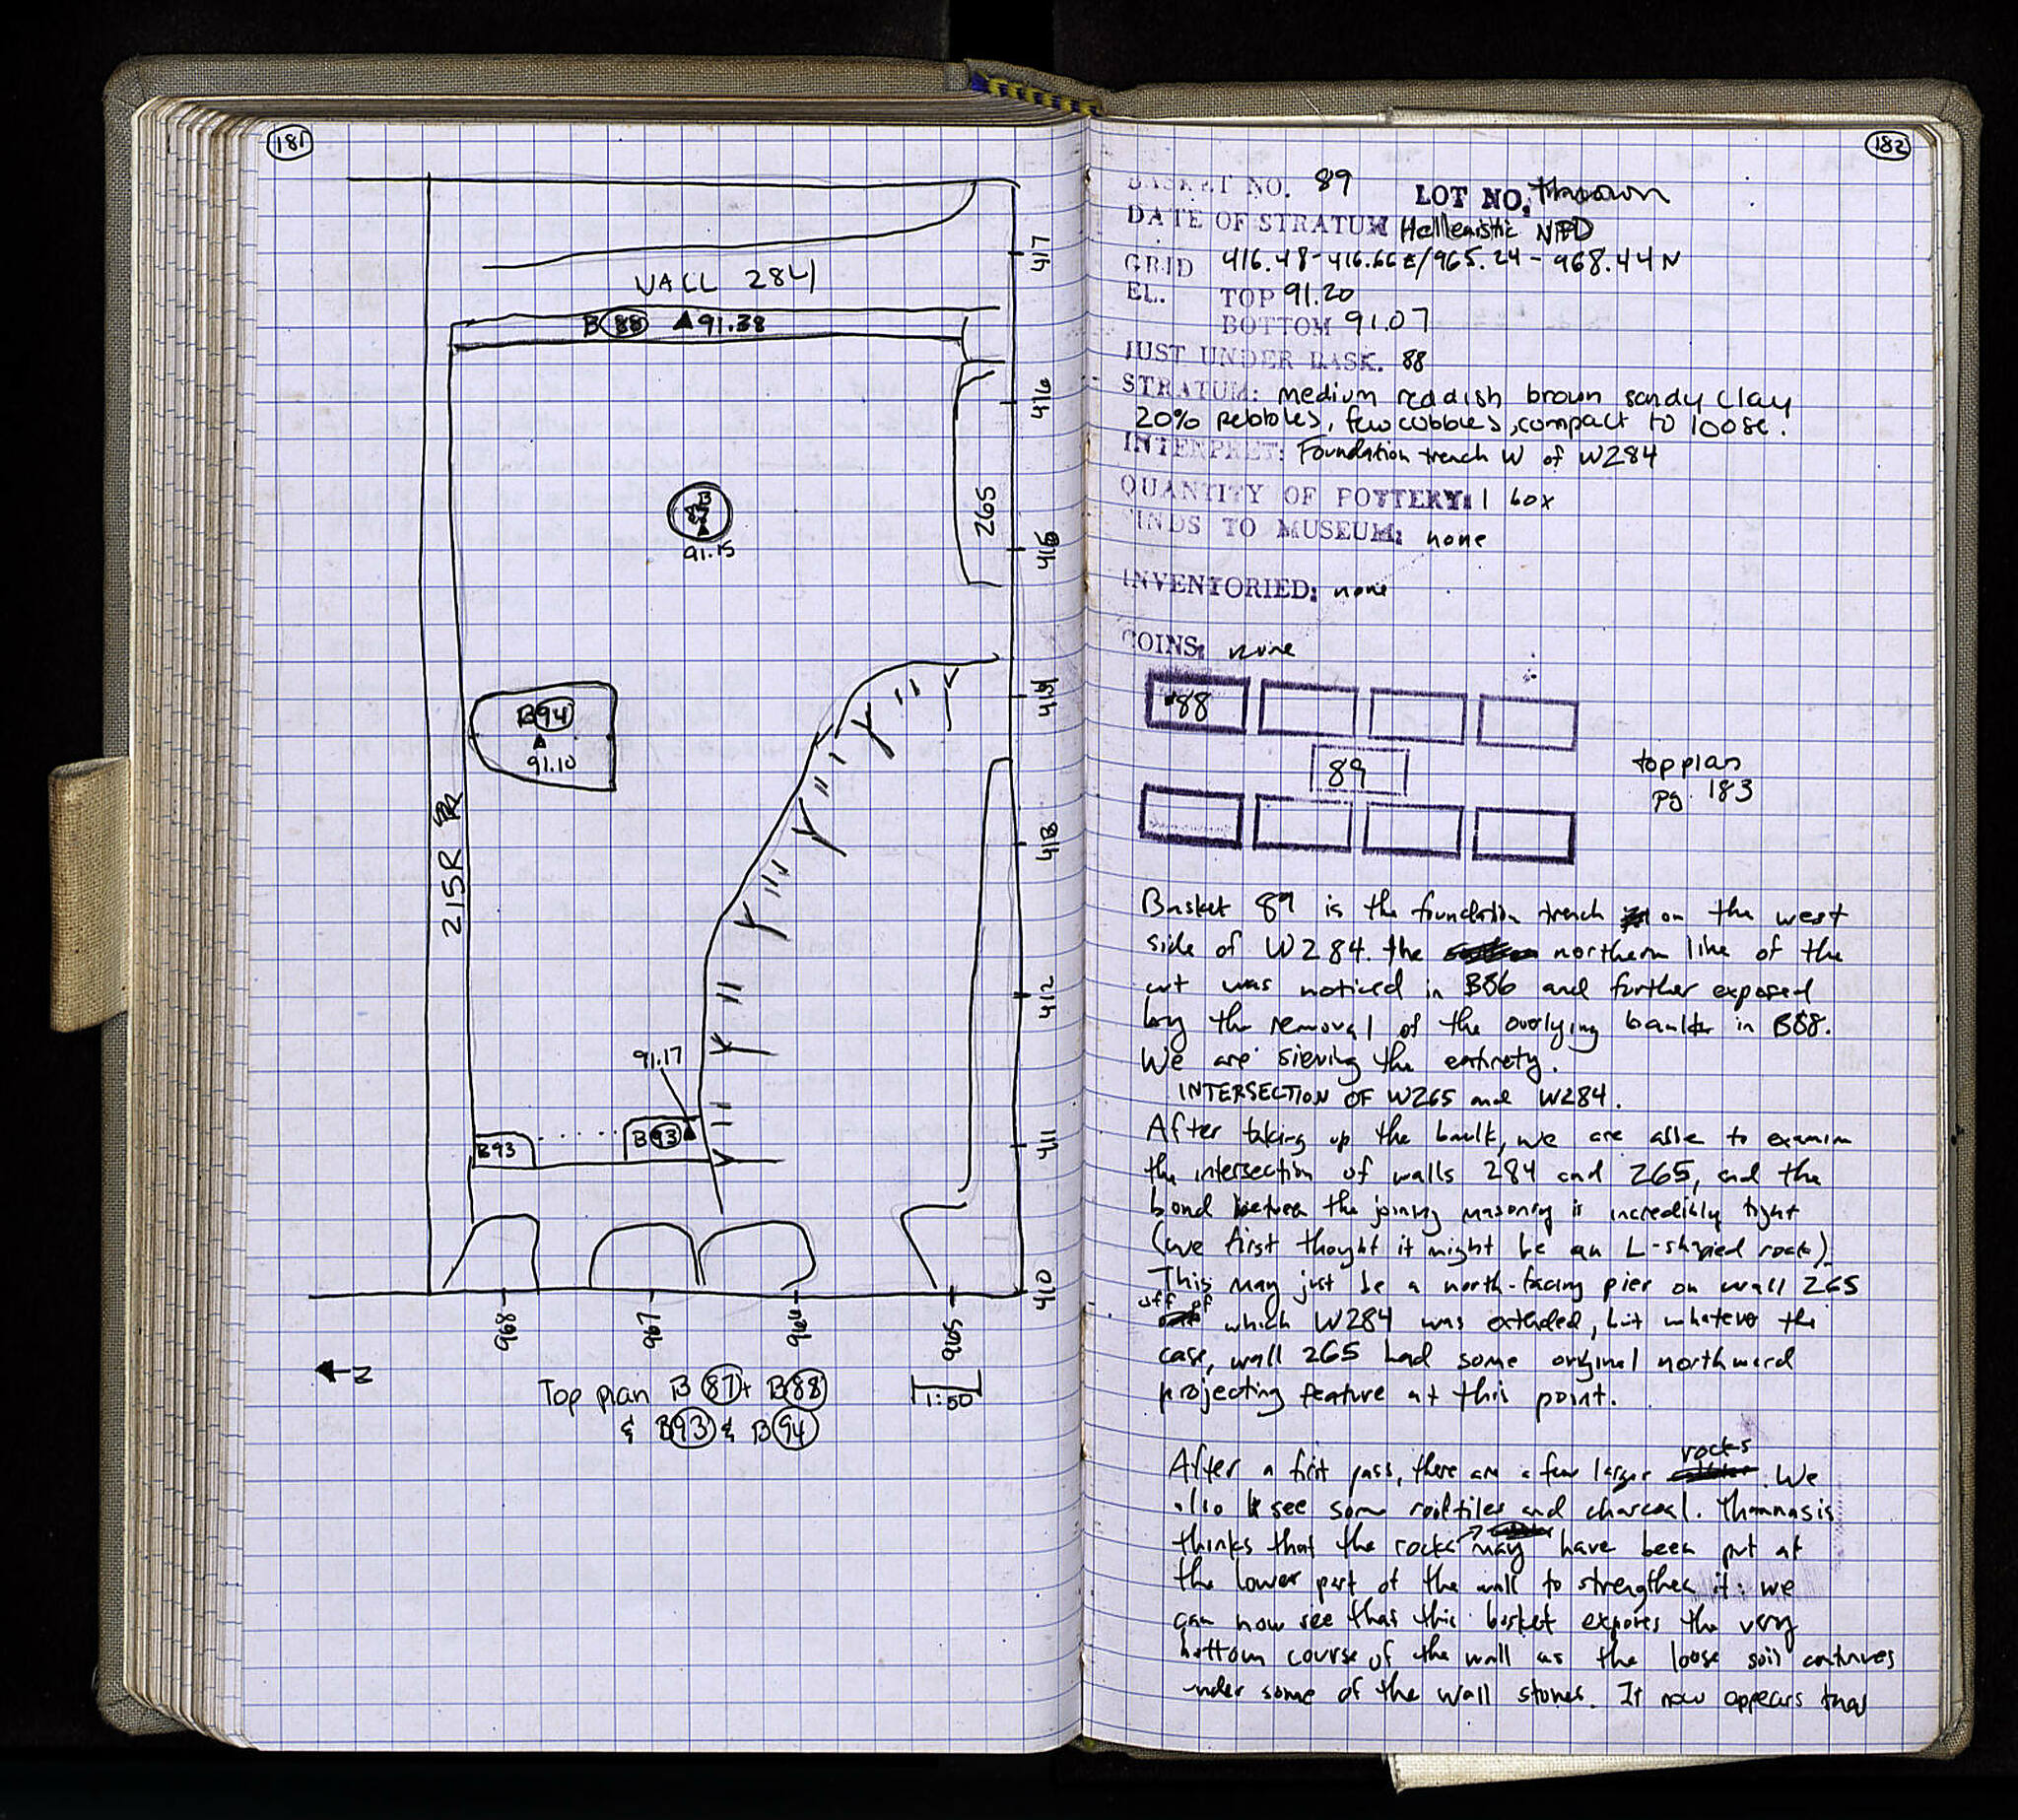 181
WALL 284
B 88 ▲ 91.38
417
416
265
B
▲
91.15
415
414
B94
▲
91.10
215R
413
412
91.17
B93 ▲
B93
411
410
968
967
966
965
N
Top plan B 87 + B 88
1:50
& B 93 & B 94
182
BASKET NO. 89 LOT NO. thrown
DATE OF STRATUM Hellenistic NPD
GRID 416.48-416.66E/965.24-968.44N
EL. TOP 91.20
BOTTOM 91.07
JUST UNDER BASK. 88
STRATUM: medium reddish brown sandy clay
20% pebbles, few cobbles, compact to loose.
INTERPRET: Foundation trench W of W284
QUANTITY OF POTTERY: 1 box
FINDS TO MUSEUM: none
INVENTORIED: none
COINS: none
88
89
top plan
pg. 183
Basket 89 is the foundation trench on the west
side of W284. the northern line of the
cut was noticed in B86 and further exposed
by the removal of the overlying baulk in B88.
We are sieving the entirety.
INTERSECTION OF W265 and W284.
After taking up the baulk, we are able to examin
the intersection of walls 284 and 265, and the
bond between the joining masonry is incredibly tight
(we first thought it might be an L-shaped rock).
This may just be a north-facing pier on wall 265
off of which W284 was extended, but whatever the
case, wall 265 had some original northward
projecting feature at this point.
After a first pass, there are a few larger rocks. We
also see some rooftiles and charcoal. Thanasis
thinks that the rocks may have been put at
the lower part of the wall to strengthen it: we
can now see that this basket exposes the very
bottom course of the wall as the loose soil continues
under some of the wall stones. It now appears that